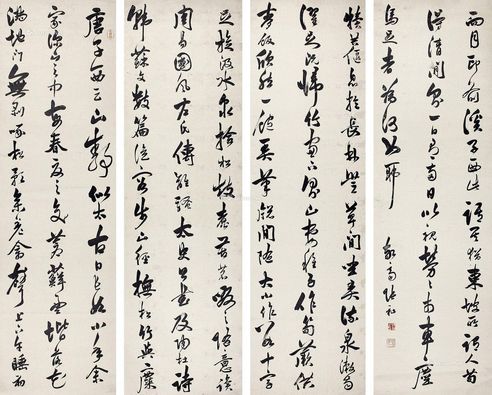 唐子西云山靜似太古日長如小年余
家深山之中每春夏之交蒼蘚盈堦落花
滿地門無剝啄松影參差禽聲上下午睡初
足旋汲水泉拾松枝煮苦茗啜之隨意讀
周易國風左氏傳離騷太史公書及陶杜詩
韓蘇文數篇從容步山徑撫松竹與麋
犢偃息於長林豐草間坐弄流泉漱齒
濯足既歸竹窗下則山妻稚子作筍蕨供
麥飯欣然一飽弄筆窗間隨大小作八九十字
月印前溪子西此語東坡所謂人
得清閒一日兩日以視勞勞車塵
馬足者為何如耶